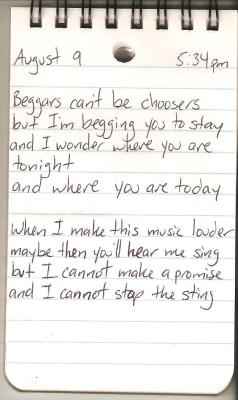 August 9 5:34pm
Beggars can't be choosers
but I'm begging you to stay
and I wonder where you are
tonight
and where you are today
when I make this music louder
maybe then you'll hear me sing
but I cannot make a promise
and I cannot stop the sting